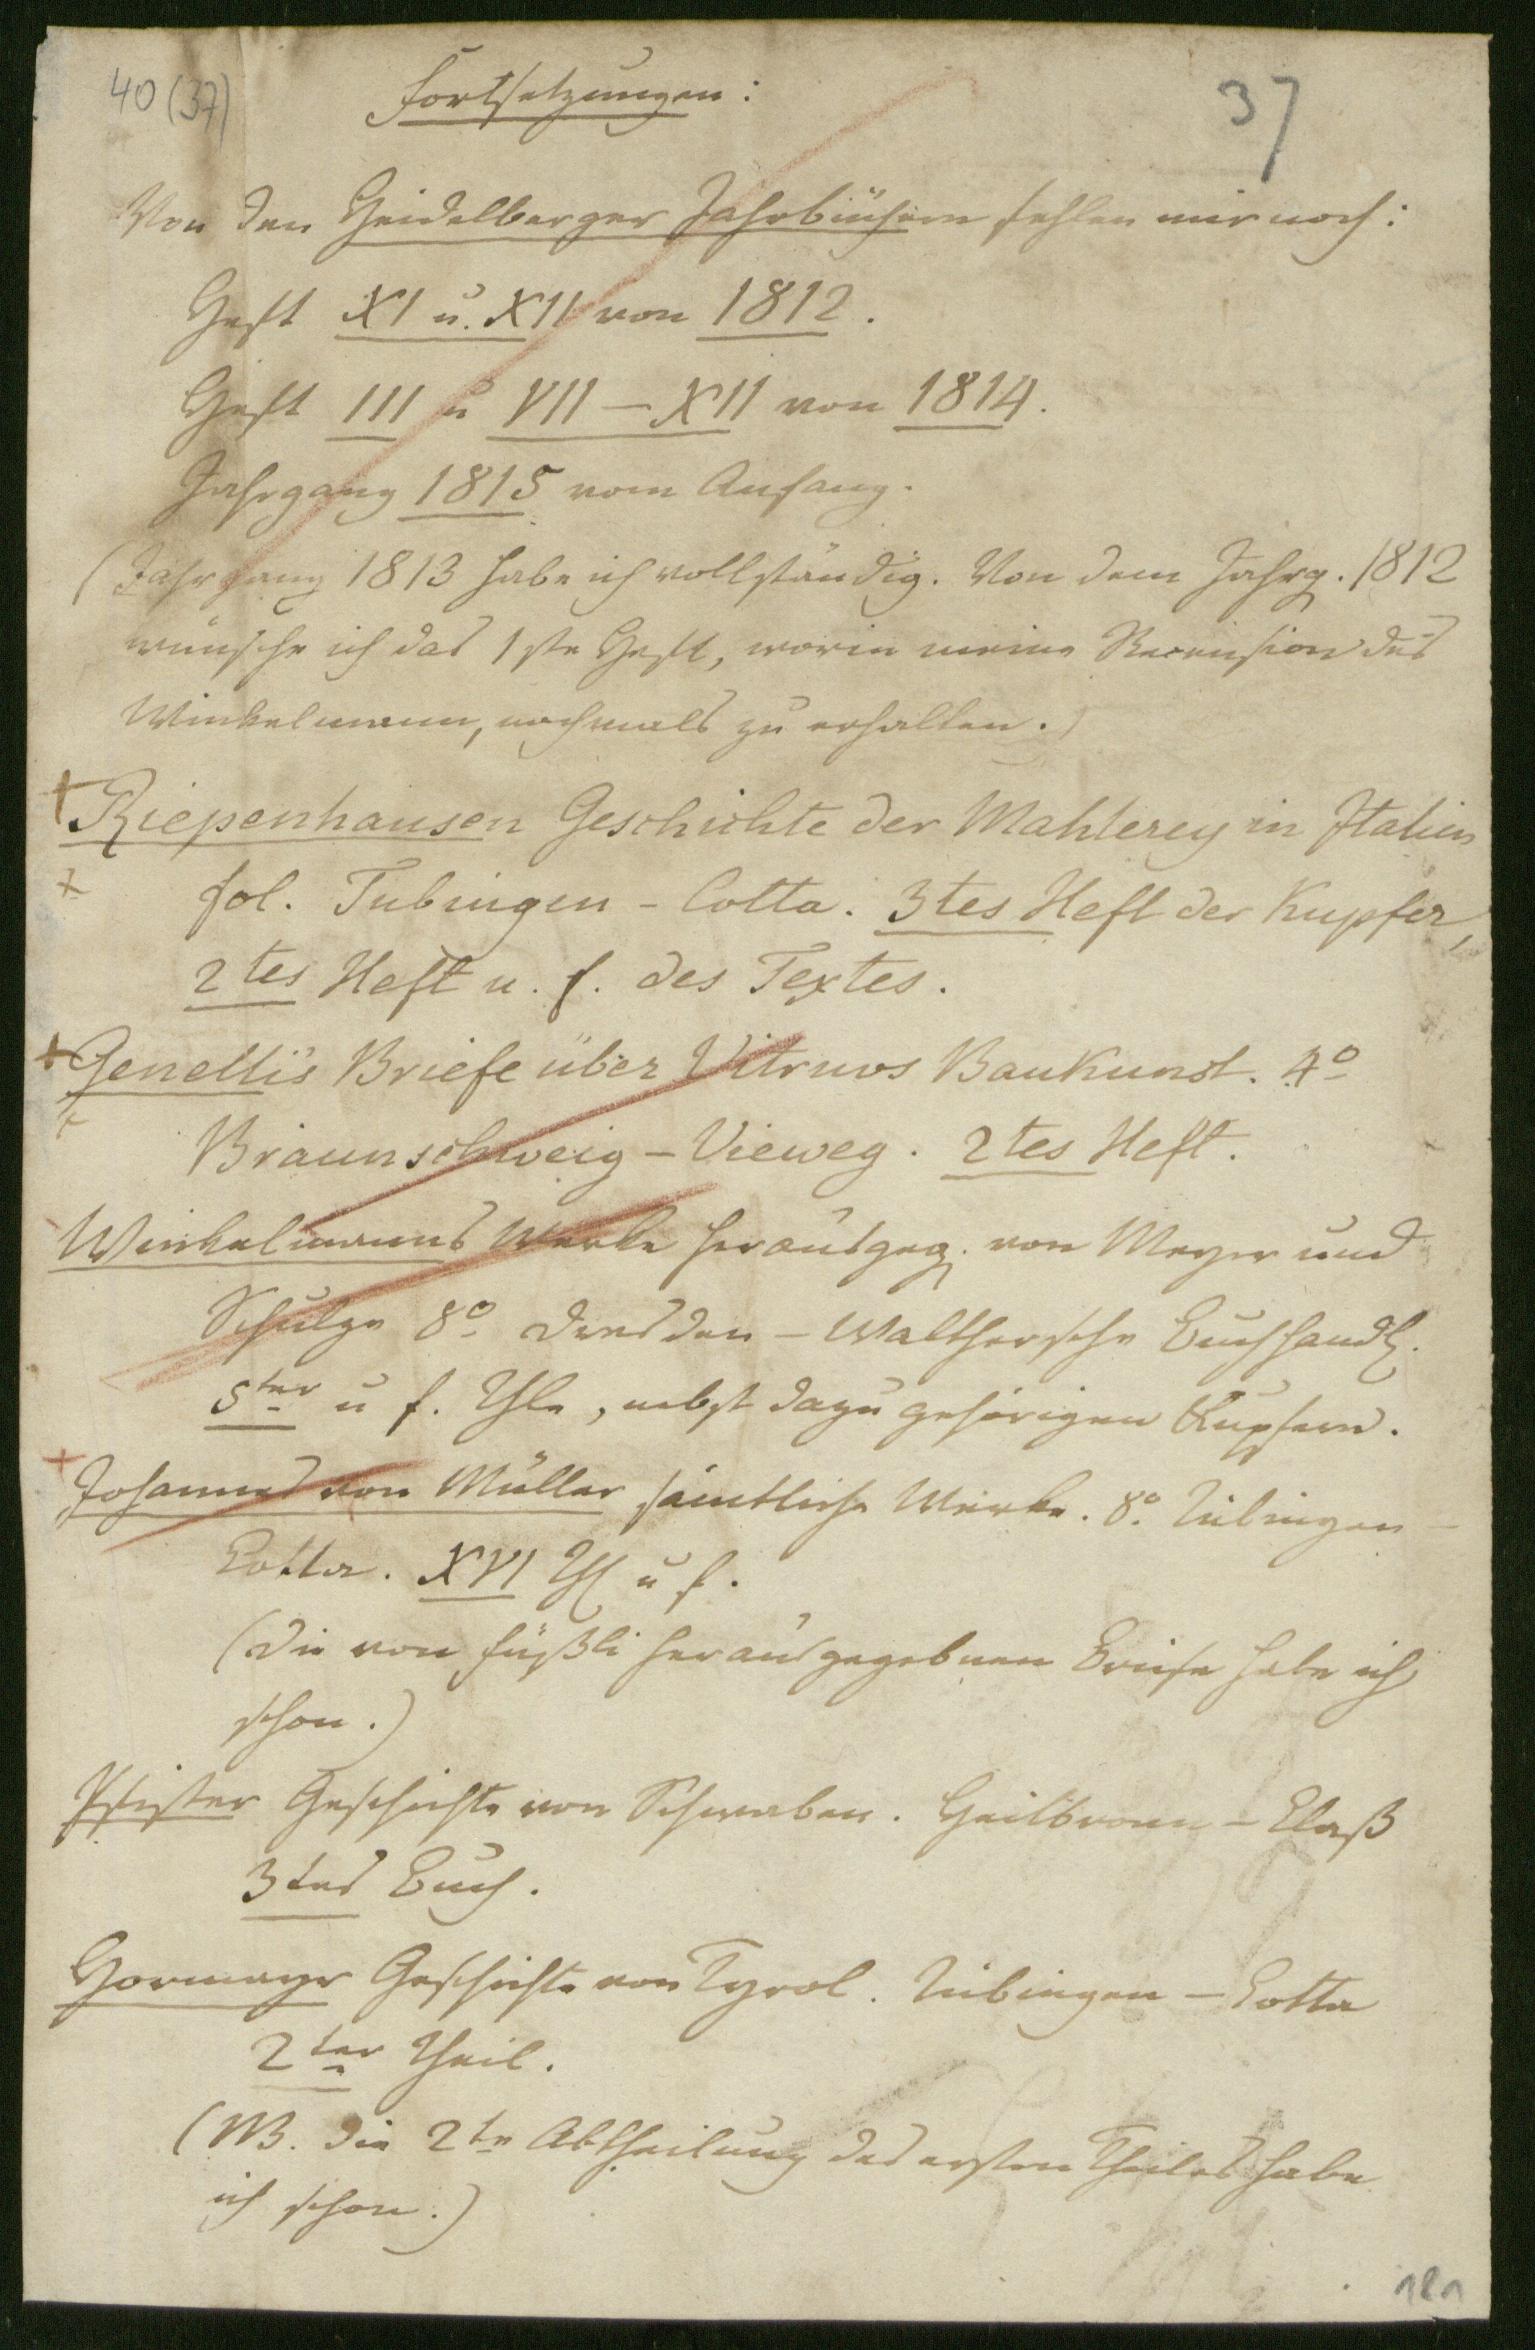 40 (37)
Fortsetzungen:
37
Von den Heidelberger Jahrbüchern fehlen mir noch:
Heft XI u. XII von 1812.
Heft III u VII – XII von 1814.
Jahrgang 1815 vom Anfang.
(Jahrgang 1813 habe ich vollständig. Von dem Jahrg. 1812
wünsche ich das 1ste Heft, worin meine Recension des
Winkelmann, nochmals zu erhalten.)
Riepenhausen Geschichte der Mahlerey in Italien
fol. Tubingen – Cotta. 3tes Heft der Kupfer,
2tes Heft u. f. des Textes.
Genelli's Briefe über Vitruvs Baukunst. 4o
Braunschweig – Vieweg. 2tes Heft.
Winkelmanns Werke herausgeg. von Meyer und
Schulze 8o Dresden – Walthersche Buchhandl.
5ter u f. Thle, nebst dazu gehörigen Kupfern.
Johannes von Müller sämtliche Werke. 8o. Tübingen –
Cotta. XVI Th u f.
(Die von Füßli herausgegebnen Briefe habe ich
schon.)
Pfister Geschichte von Schwaben. Heilbronn – Claß
3tes Buch.
Hormayr Geschichte von Tyrol. Tübingen – Cotta
2ter Theil.
(NB. Die 2te Abtheilung des ersten Theiles habe
ich schon.)
181